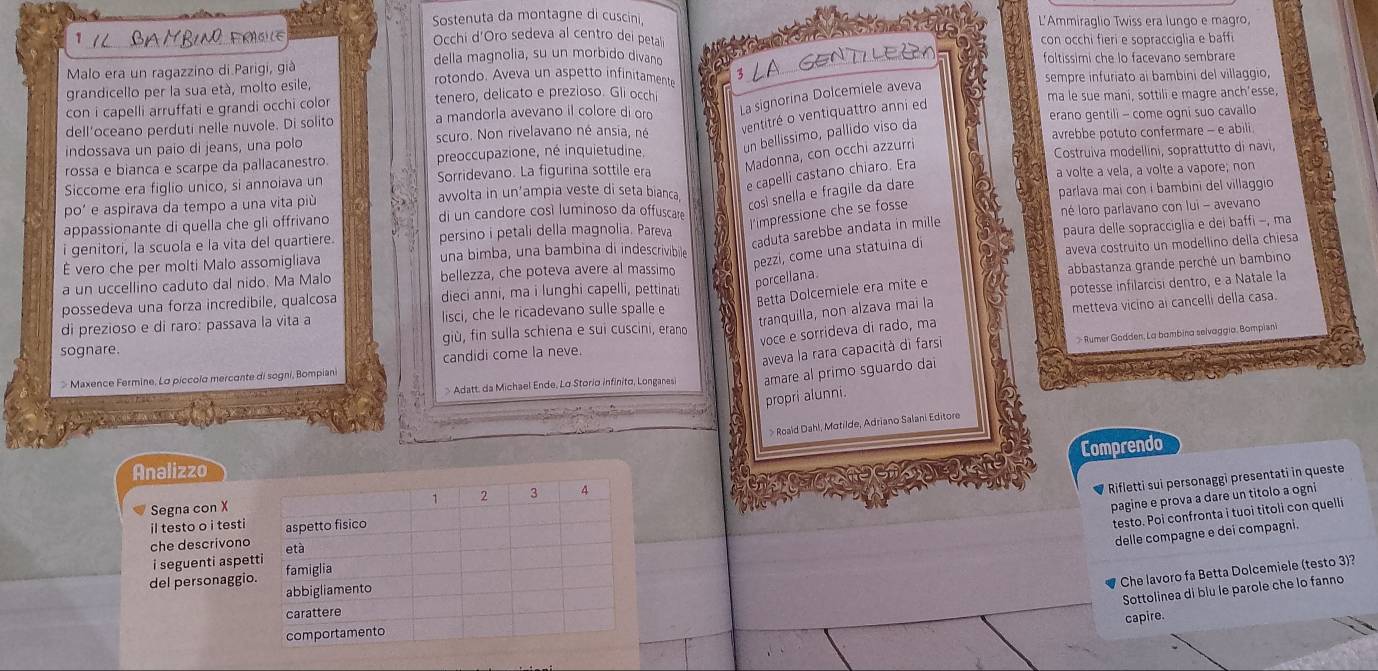 1 IL BAMBINO FRAGILE
Malo era un ragazzino di Parigi, già
grandicello per la sua età, molto esile,
con i capelli arruffati e grandi occhi color
dell'oceano perduti nelle nuvole. Di solito
indossava un paio di jeans, una polo
rossa e bianca e scarpe da pallacanestro.
Siccome era figlio unico, si annoiava un
po' e aspirava da tempo a una vita più
appassionante di quella che gli offrivano
i genitori, la scuola e la vita del quartiere.
È vero che per molti Malo assomigliava
a un uccellino caduto dal nido. Ma Malo
possedeva una forza incredibile, qualcosa
di prezioso e di raro: passava la vita a
sognare.
> Maxence Fermine, La piccola mercante di sogni, Bompiani
Sostenuta da montagne di cuscini,
Occhi d'Oro sedeva al centro dei petali
della magnolia, su un morbido divano
rotondo. Aveva un aspetto infinitamente
tenero, delicato e prezioso. Gli occhi
a mandorla avevano il colore di oro
scuro. Non rivelavano né ansia, né
preoccupazione, né inquietudine.
Sorridevano. La figurina sottile era
avvolta in un'ampia veste di seta bianca,
di un candore così luminoso da offuscare
persino i petali della magnolia. Pareva
una bimba, una bambina di indescrivibile
bellezza, che poteva avere al massimo
dieci anni, ma i lunghi capelli, pettinati
lisci, che le ricadevano sulle spalle e
giù, fin sulla schiena e sui cuscini, erano
candidi come la neve.
> Adatt. da Michael Ende, La Storia infinita, Longanesi
3 LA GENTILEZZA
La signorina Dolcemiele aveva
ventitré o ventiquattro anni ed
un bellissimo, pallido viso da
Madonna, con occhi azzurri
e capelli castano chiaro. Era
così snella e fragile da dare
l'impressione che se fosse
caduta sarebbe andata in mille
pezzi, come una statuina di
porcellana.
Betta Dolcemiele era mite e
tranquilla, non alzava mai la
voce e sorrideva di rado, ma
aveva la rara capacità di farsi
amare al primo sguardo dai
propri alunni.
> Roald Dahl, Matilde, Adriano Salani Editore
L'Ammiraglio Twiss era lungo e magro,
con occhi fieri e sopracciglia e baffi
foltissimi che lo facevano sembrare
sempre infuriato ai bambini del villaggio,
ma le sue mani, sottili e magre anch'esse,
erano gentili – come ogni suo cavallo
avrebbe potuto confermare – e abili.
Costruiva modellini, soprattutto di navi,
a volte a vela, a volte a vapore; non
parlava mai con i bambini del villaggio
né loro parlavano con lui – avevano
paura delle sopracciglia e dei baffi –, ma
aveva costruito un modellino della chiesa
abbastanza grande perché un bambino
potesse infilarcisi dentro, e a Natale la
metteva vicino ai cancelli della casa.
> Rumer Godden, La bambina selvaggia, Bompiani
Analizzo
Segna con X
il testo o i testi
che descrivono
i seguenti aspetti
del personaggio.
1 2 3 4
aspetto fisico
età
famiglia
abbigliamento
carattere
comportamento
Comprendo
Rifletti sui personaggi presentati in queste
pagine e prova a dare un titolo a ogni
testo. Poi confronta i tuoi titoli con quelli
delle compagne e dei compagni.
Che lavoro fa Betta Dolcemiele (testo 3)?
Sottolinea di blu le parole che lo fanno
capire.